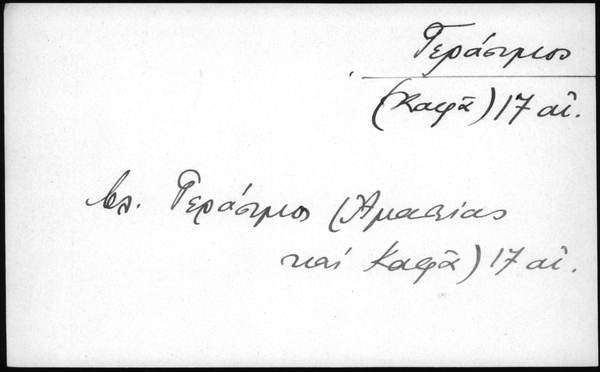 Γεράσιμος
(Καφᾶ) 17 αἰ.
βλ. Γεράσιμος (Ἀμασείας
καὶ Καφᾶ) 17 αἰ.